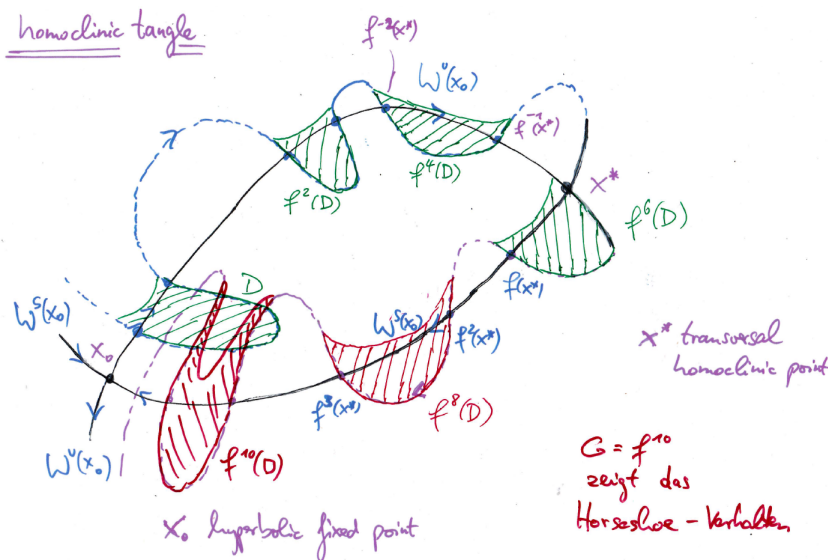 homoclinic tangle
f⁻²(x*)
Wᵘ(x₀)
f⁻¹(x*)
f⁴(D)
f²(D)
x*
f⁶(D)
D
f(x*)
Wˢ(x₀)
Wˢ(x₀)
f²(x*)
x₀
x* transversal
homoclinic point
f³(x*)
f⁸(D)
Wᵘ(x₀)
f¹⁰(D)
G = f¹⁰
zeigt das
Horseshoe - Verhalten
x₀ hyperbolic fixed point